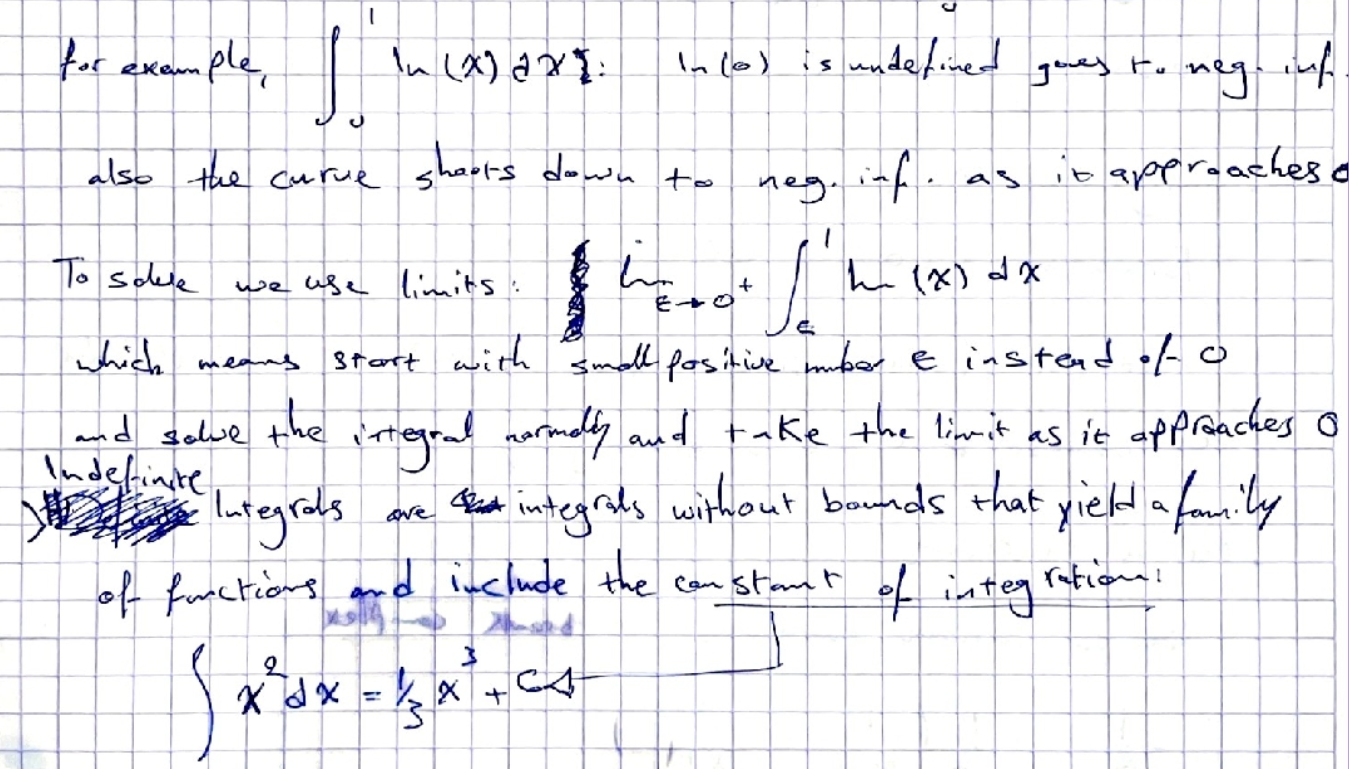 for example, ∫₀¹ ln(x) dx: ln(0) is undefined goes to neg. inf.
also the curve shoots down to neg. inf. as it approaches 0
To solve we use limits: lim ε→0⁺ ∫_ε¹ ln(x) dx
which means start with small positive number ε instead of 0
and solve the integral normally and take the limit as it approaches 0
Indefinite
Integrals are integrals without bounds that yield a family
of functions and include the constant of integration:
∫ x² dx = 1/3 x³ + C